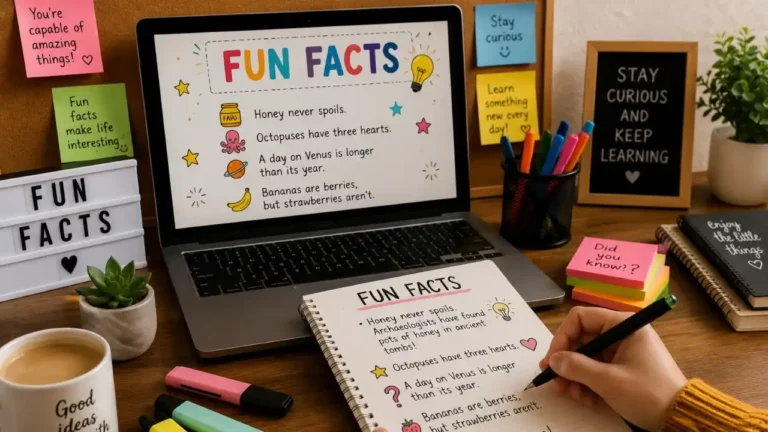 You're
capable of
amazing
things! ♡
Fun
facts
make life
interesting
FUN
FACTS
♥
FUN FACTS
Honey never spoils.
Octopuses have three hearts.
A day on Venus is longer
than its year.
Bananas are berries,
but strawberries aren't.
Stay
curious
Learn
something
new every
day! ♡
STAY
CURIOUS
AND
KEEP
LEARNING
♥
enjoy
the little
things
Did
you
know??
FUN FACTS
• Honey never spoils.
Archaeologists have found
pots of honey in ancient
tombs!
Octopuses have three hearts.
? A day on Venus is longer
than its year.
Bananas are berries,
but strawberries aren't.
Good
ideas